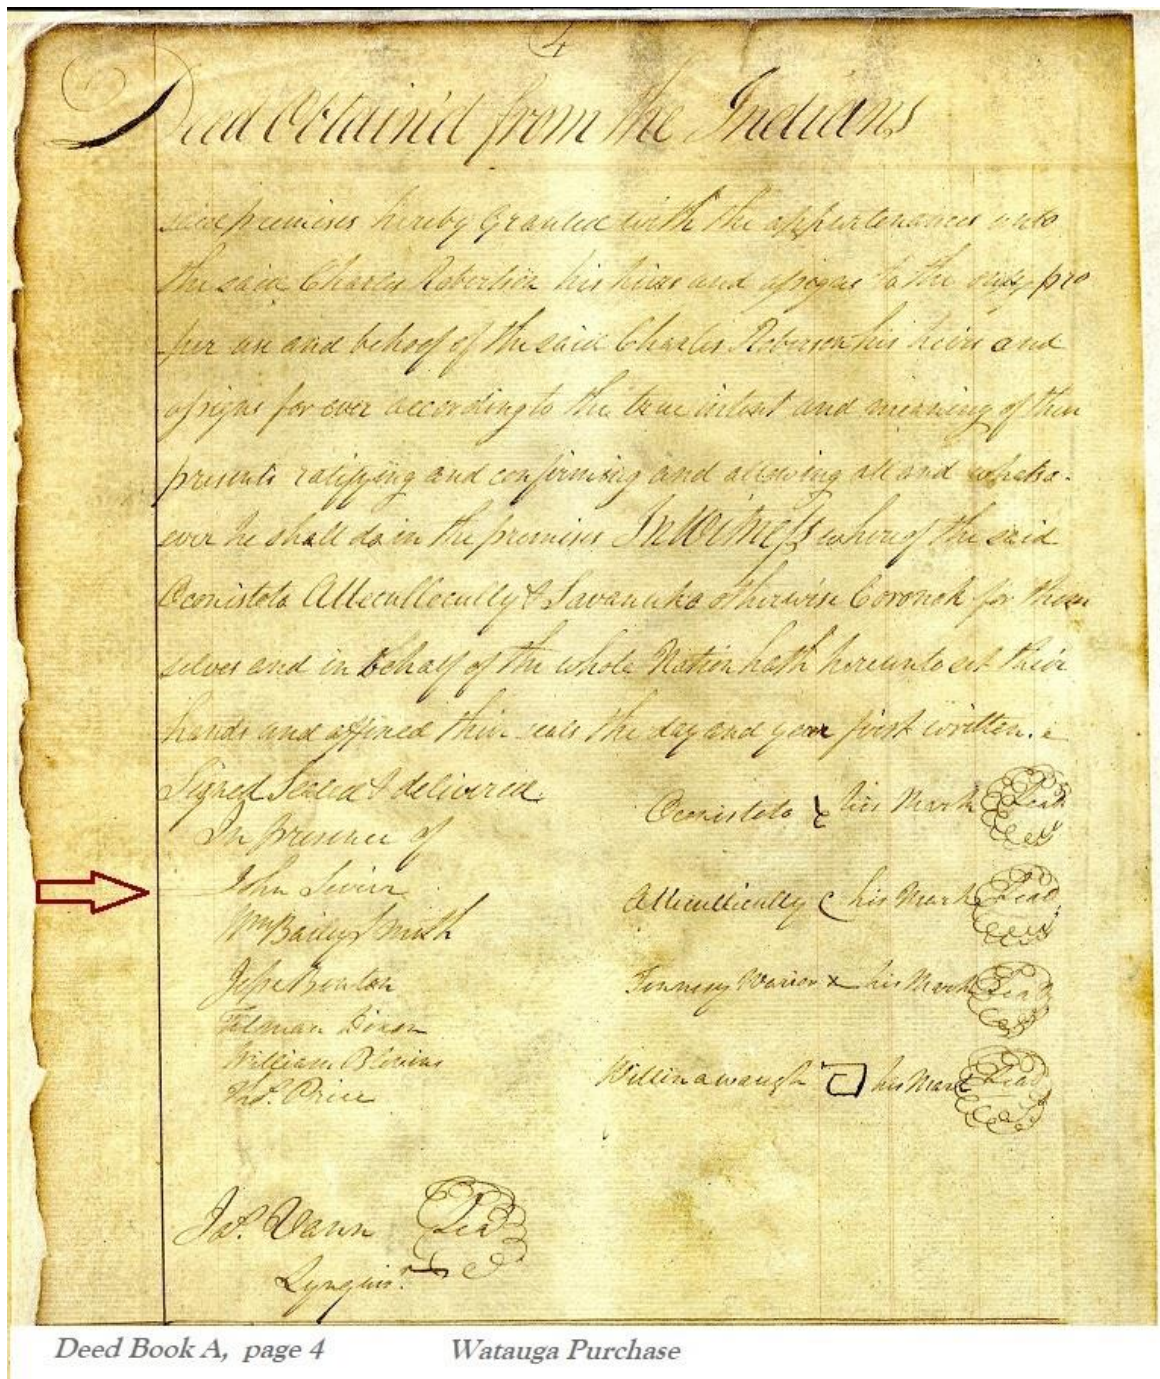 4
Deed Obtain'd from the Indians
said premises hereby Granted with the appurtenances unto
the said Charles Robertson his heirs and assigns to the only pro
per use and behoof of the said Charles Roberson his heirs and
assigns for ever according to the true intent and meaning of these
presents ratifying and confirming and allowing all and whatso-
ever he shall do in the premises In Witness whereof the said
Oconistoto Attecullecully & Savanuka otherwise Coronoh for them
selves and in behalf of the whole Nation hath hereunto set their
hands and affixed their seals the day and year first written.
Signed Sealed & delivered
In presence of
Oconistoto his Mark Seal
John Sevier
Attecullecully his Mark Seal
Wm Bailey Smith
Jesse Benton
Tennesy Warior x his Mark Seal
Tilman Dixon
William Blevins
Willinawaugh his Mark Seal
Thos. Price
Jos. Vann Seal
Lynguisr.
Deed Book A, page 4 Watauga Purchase